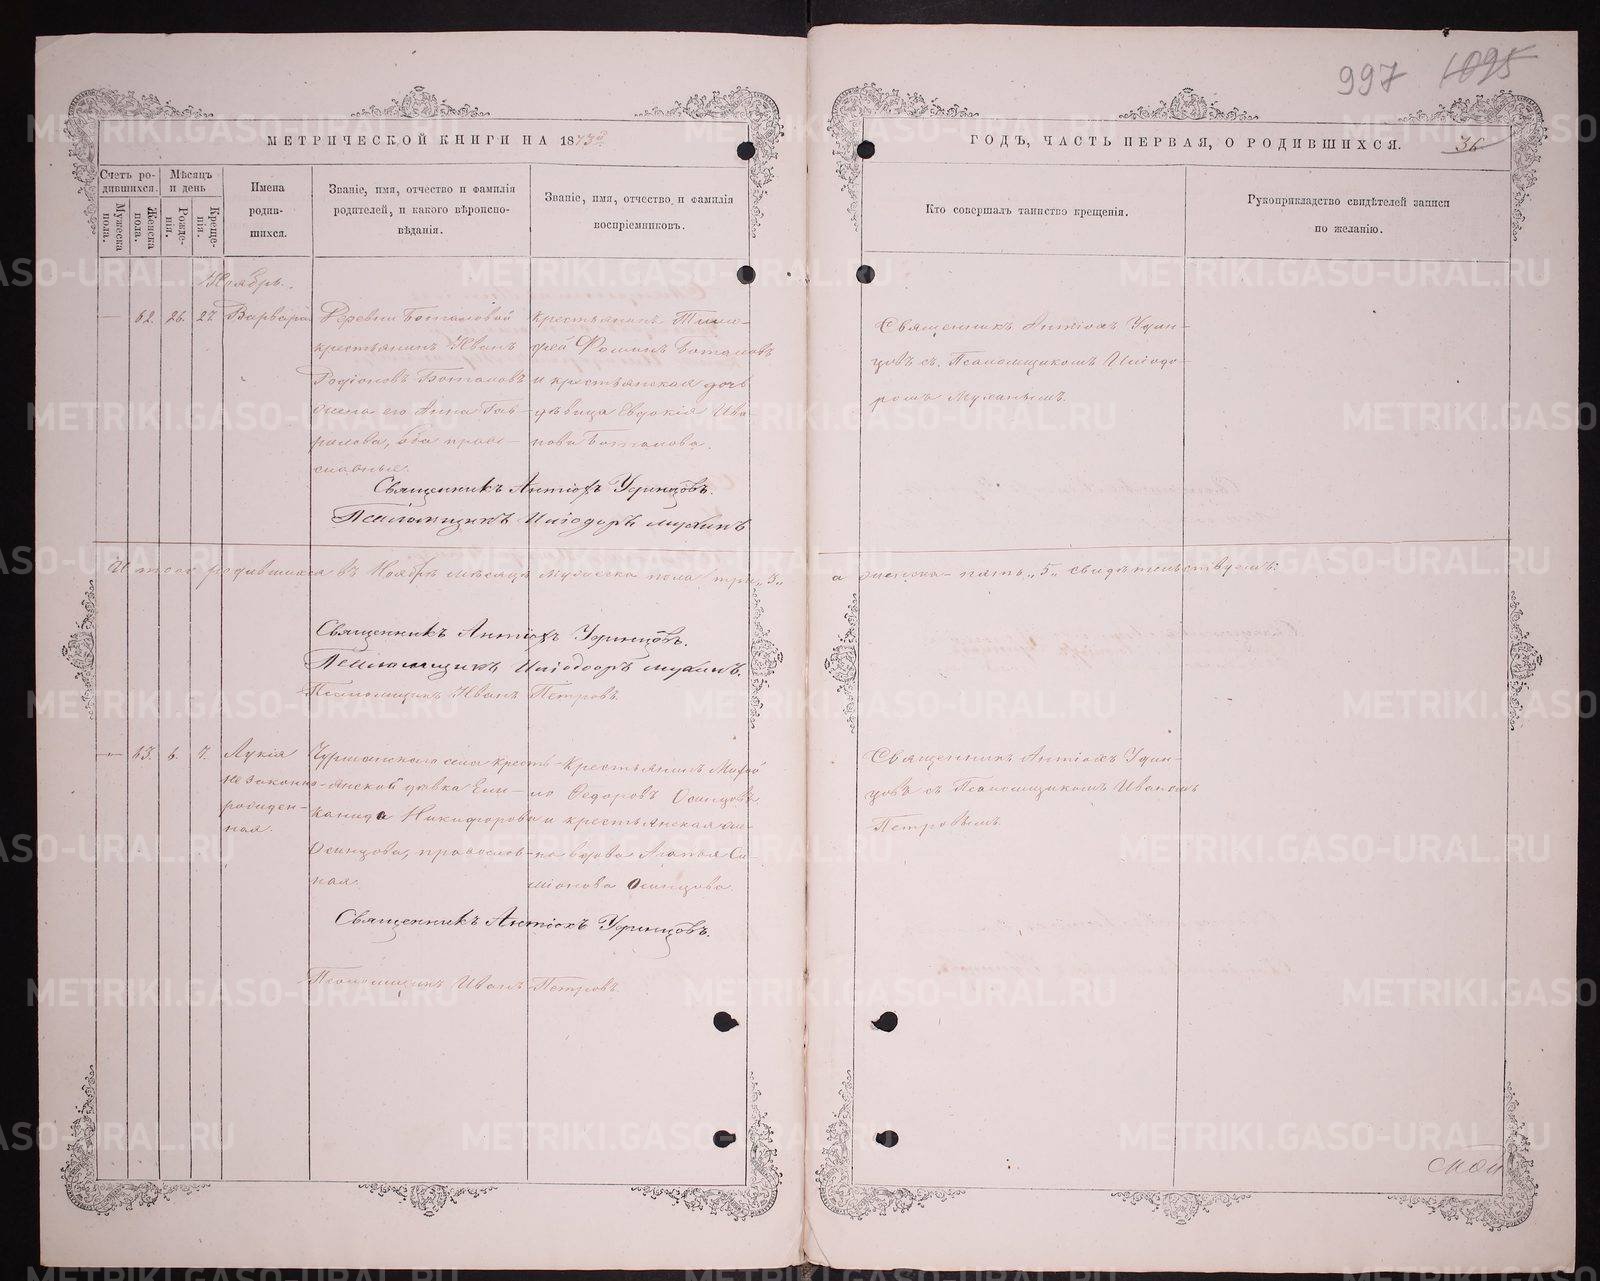 997 1095
МЕТРИЧЕСКОЙ КНИГИ НА 1873й
ГОДЪ, ЧАСТЬ ПЕРВАЯ, О РОДИВШИХСЯ.
36
Счетъ родившихся.
Мѣсяцъ и день
Мужеска пола.
Женска пола.
Рожденія.
Крещенія.
Имена
родив-
шихся.
Званіе, имя, отчество и фамилія
родителей, и какого вѣроиспо-
вѣданія.
Званіе, имя, отчество и фамилія
воспріемниковъ.
Кто совершалъ таинство крещенія.
Рукоприкладство свидѣтелей записи
по желанію.
Ноябрь.
— 62. 26. 27. Варвара
Деревни Боталовой
крестьянинъ Иванъ
Родіоновъ Боталовъ
жена его Анна Гав-
рилова, оба право-
славные.
крестьянинъ Тимо-
фей Фоминъ Боталовъ
и крестьянская дочь
дѣвица Евдокія Ива-
нова Боталова.
Священникъ Антіохъ Удин-
цовъ съ Псаломщикомъ Иліодо-
ромъ
Священникъ Антіохъ Удинцовъ.
Псаломщикъ Иліодоръ
Итого родившихся въ Ноябрѣ мѣсяцѣ мужеска пола три „3„
а женска - пять „5„ свидѣтельствуемъ:
Священникъ Антіохъ Удинцовъ.
Псаломщикъ Иліодоръ
Псаломщикъ Иванъ Петровъ
— 63. 6. 7. Лукія
незаконно-
рожден-
ная.
села кресть-
янской дѣвка Ели-
канида Никифорова
Осинцова, православ-
ная.
Крестьянинъ
Федоровъ Осинцовъ
и крестьянская
вдова Агапья Си-
міонова Осинцова.
Священникъ Антіохъ Удин-
цовъ съ Псаломщикомъ Иваномъ
Петровымъ
Священникъ Антіохъ Удинцовъ.
Псаломщикъ Иванъ Петровъ
METRIKI.GASO-URAL.RU